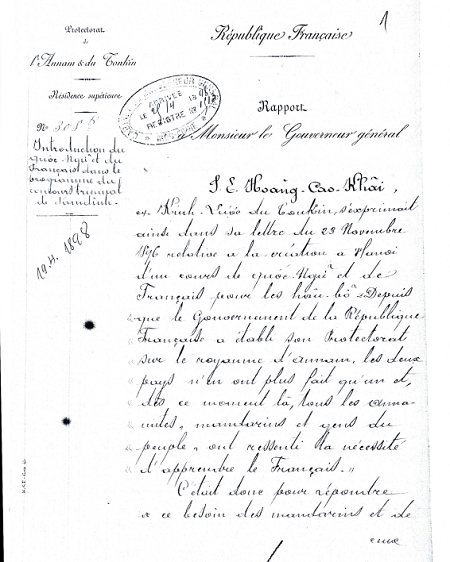 1
Protectorat
de
l'Annam & du Tonkin
Résidence supérieure
République Française
Rapport
à Monsieur le Gouverneur général
Introduction du
quốc-Ngữ et du
Français dans le
programme du
concours triennal
de Namdinh.
19.4.1898
S. E. Hoang-Cao-Khai,
ex-Kinh-Lược du Tonkin, s'exprimait
ainsi dans sa lettre du 23 Novembre
1896 relative à la création à Hanoi
d'un cours de quốc-Ngữ et de
Français pour les hâu-bô "Depuis
" que le Gouvernement de la République
" Française a établi son Protectorat
" sur le royaume d'annam, les deux
" pays n'en ont plus fait qu'un et,
" dès ce moment là, tous les anna-
" mites, mandarins et gens du
" peuple, ont ressenti la nécessité
" d'apprendre le Français."
C'était donc pour répondre
à ce besoin des mandarins et de